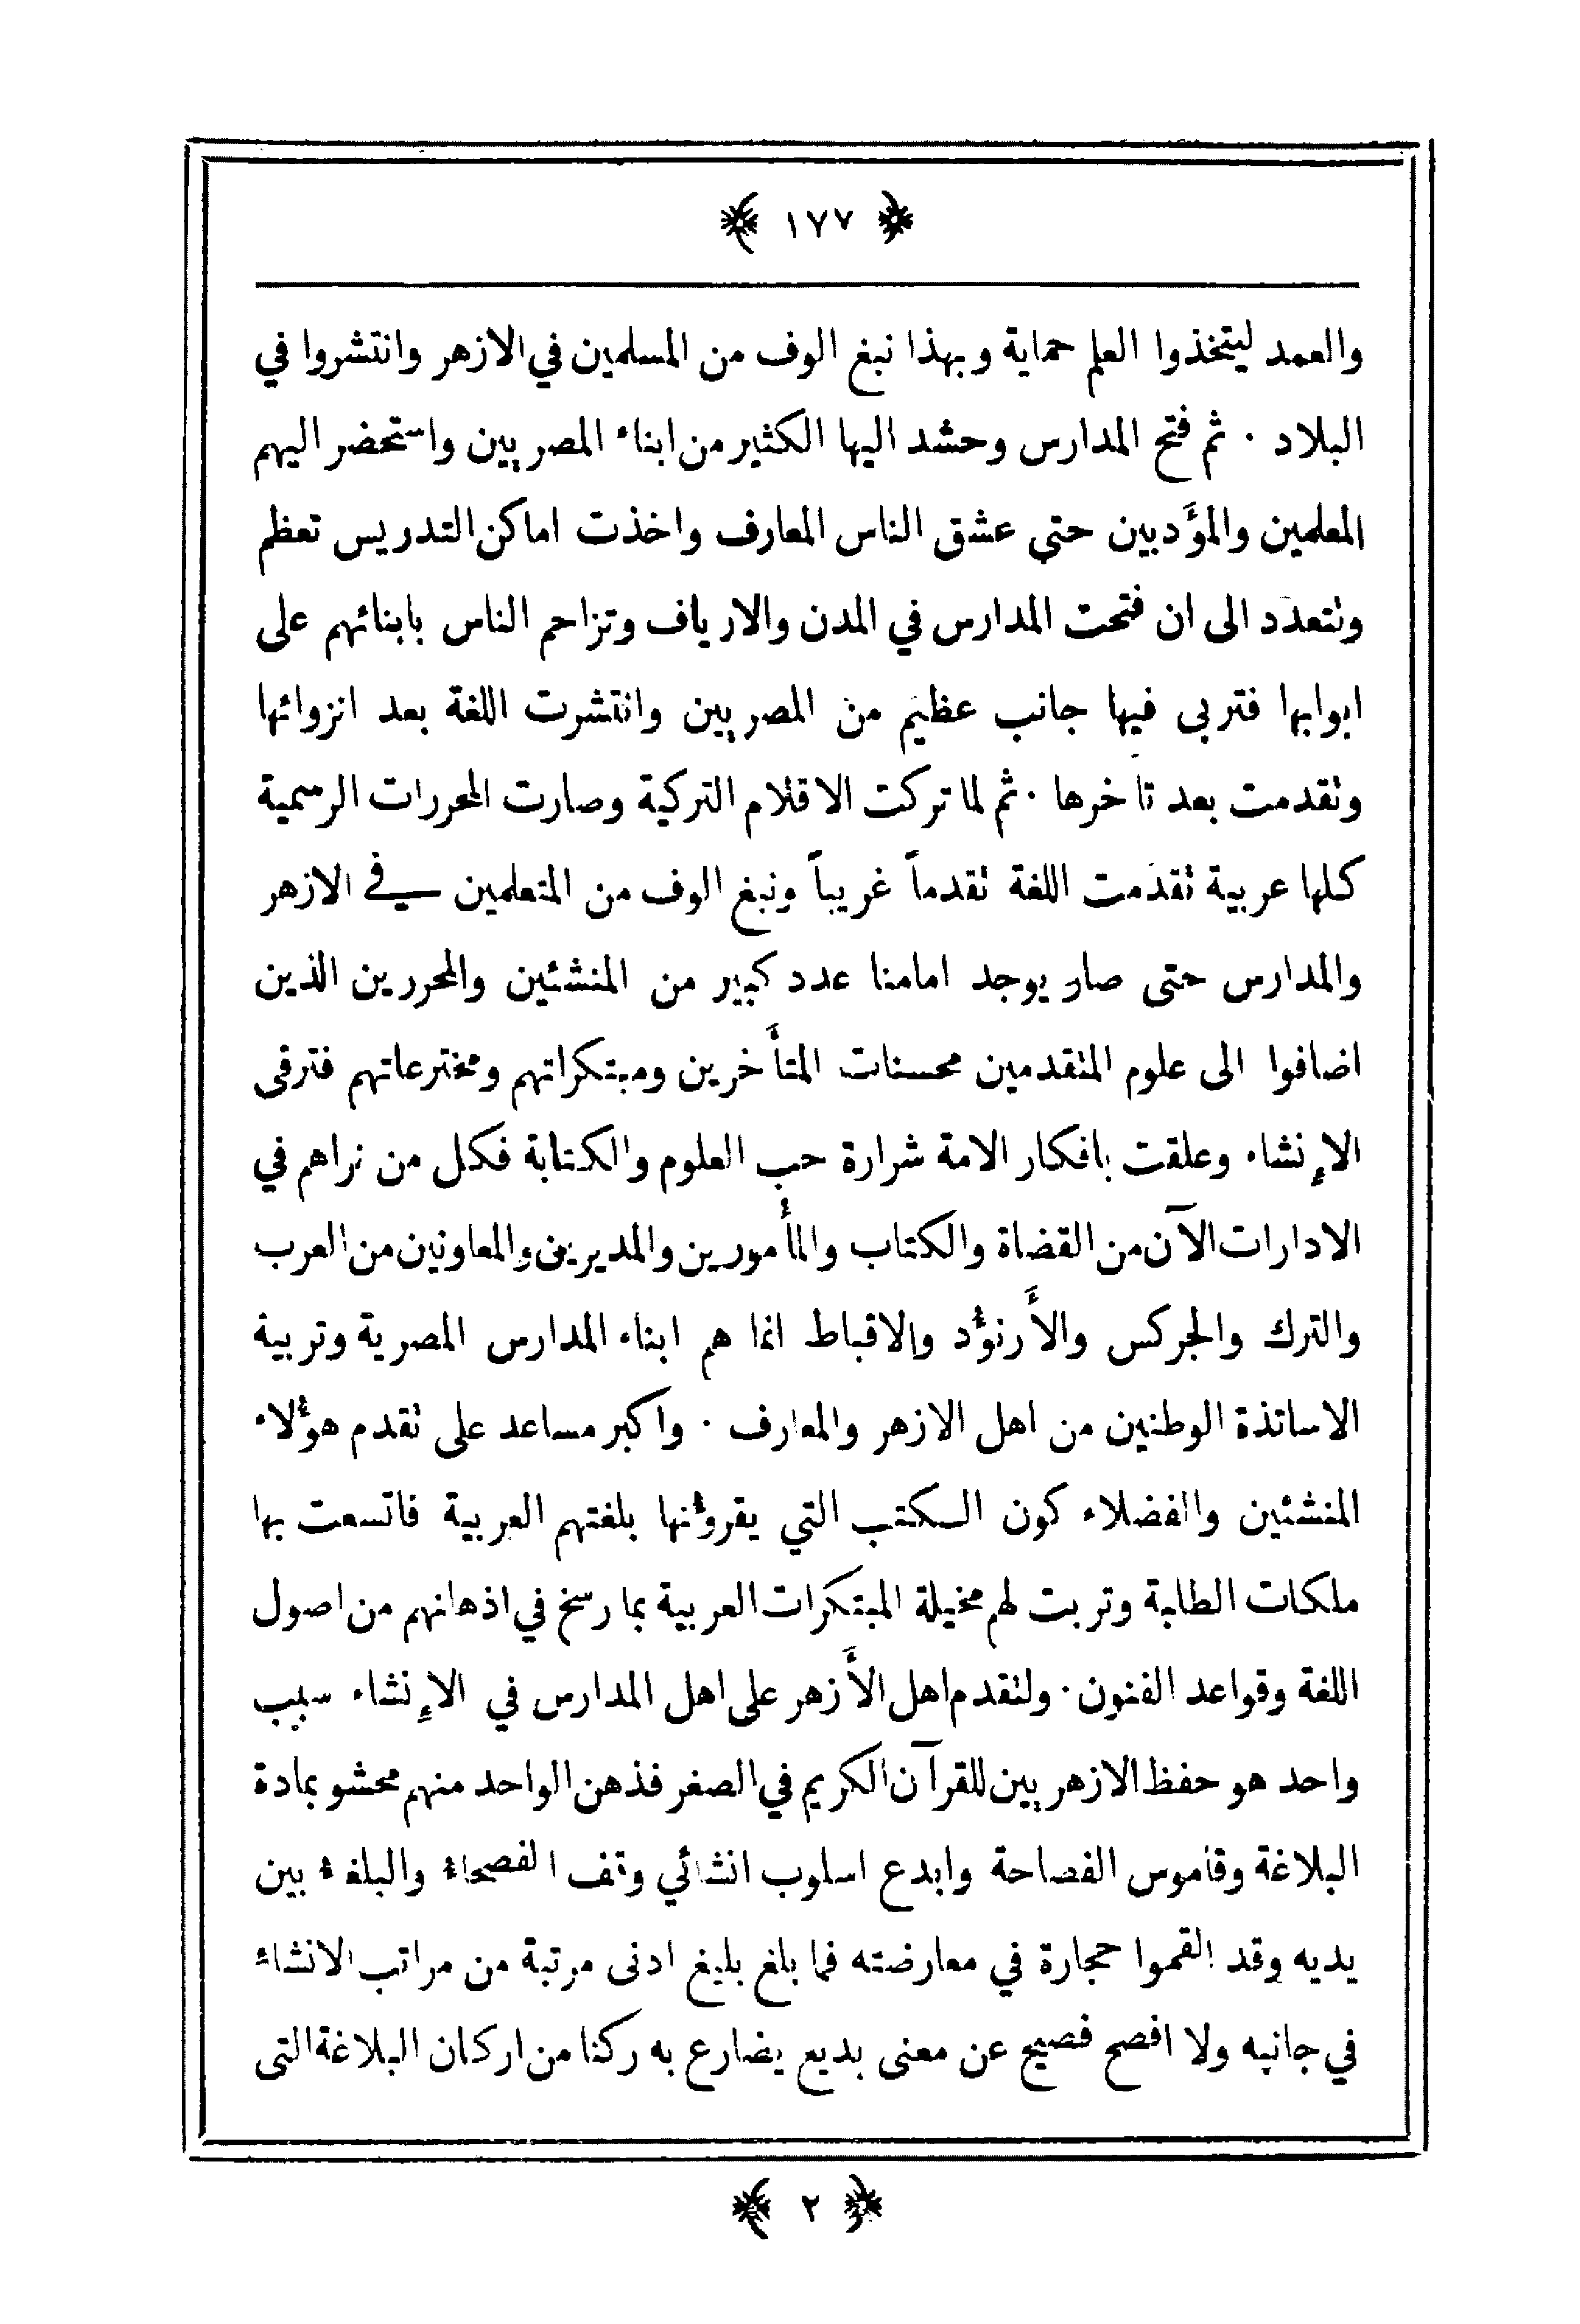 ١٧٧
والعمد ليتخذوا العلم حماية وبهذا نبغ الوف من المسلمين في الازهر وانتشروا في
البلاد ٠ ثم فتح المدارس وحشد اليها الكثير من ابناء المصريين واستحضر اليهم
المعلمين والمؤَدبين حتى عشق الناس المعارف واخذت اماكن التدريس تعظم
وتتعدد الى ان فتحت المدارس في المدن والارياف وتزاحم الناس بابنائهم على
ابوابها فتربى فيها جانب عظيم من المصريين وانتشرت اللغة بعد انزوائها
وتقدمت بعد تاخرها ٠ ثم لما تركت الاقلام التركية وصارت المحررات الرسمية
كلها عربية تقدمت اللغة تقدماً غريباً ونبغ الوف من المتعلمين في الازهر
والمدارس حتى صار يوجد امامنا عدد كبير من المنشئين والمحررين الذين
اضافوا الى علوم المتقدمين محسنات المتأَخرين ومبتكراتهم ومخترعاتهم فترقى
الإنشاء وعلقت بافكار الامة شرارة حب العلوم والكتابة فكل من نراهم في
الادارات الآن من القضاة والكتاب والمأمورين والمديرين والمعاونين من العرب
والترك والجركس والأَرنؤد والاقباط انما هم ابناء المدارس المصرية وتربية
الاساتذة الوطنين من اهل الازهر والمعارف ٠ واكبر مساعد على تقدم هؤلاء
المنشئين والفضلاء كون الكتب التي يقرؤنها بلغتهم العربية فاتسعت بها
ملكات الطلبة وتربت لهم مخيلة المبتكرات العربية بما رسخ في اذهانهم من اصول
اللغة وقواعد الفنون ٠ ولتقدم اهل الأَزهر على اهل المدارس في الإنشاء سبب
واحد هو حفظ الازهريين للقرآن الكريم في الصغر فذهن الواحد منهم محشو بمادة
البلاغة وقاموس الفصاحة وابدع اسلوب انشائي وقف الفصحاء والبلغاء بين
يديه وقد القموا حجارة في معارضته فما بلغ بليغ ادنى مرتبة من مراتب الانشاء
في جانبه ولا افصح فصيح عن معنى بديع يضارع به ركنا من اركان البلاغة التى
٢